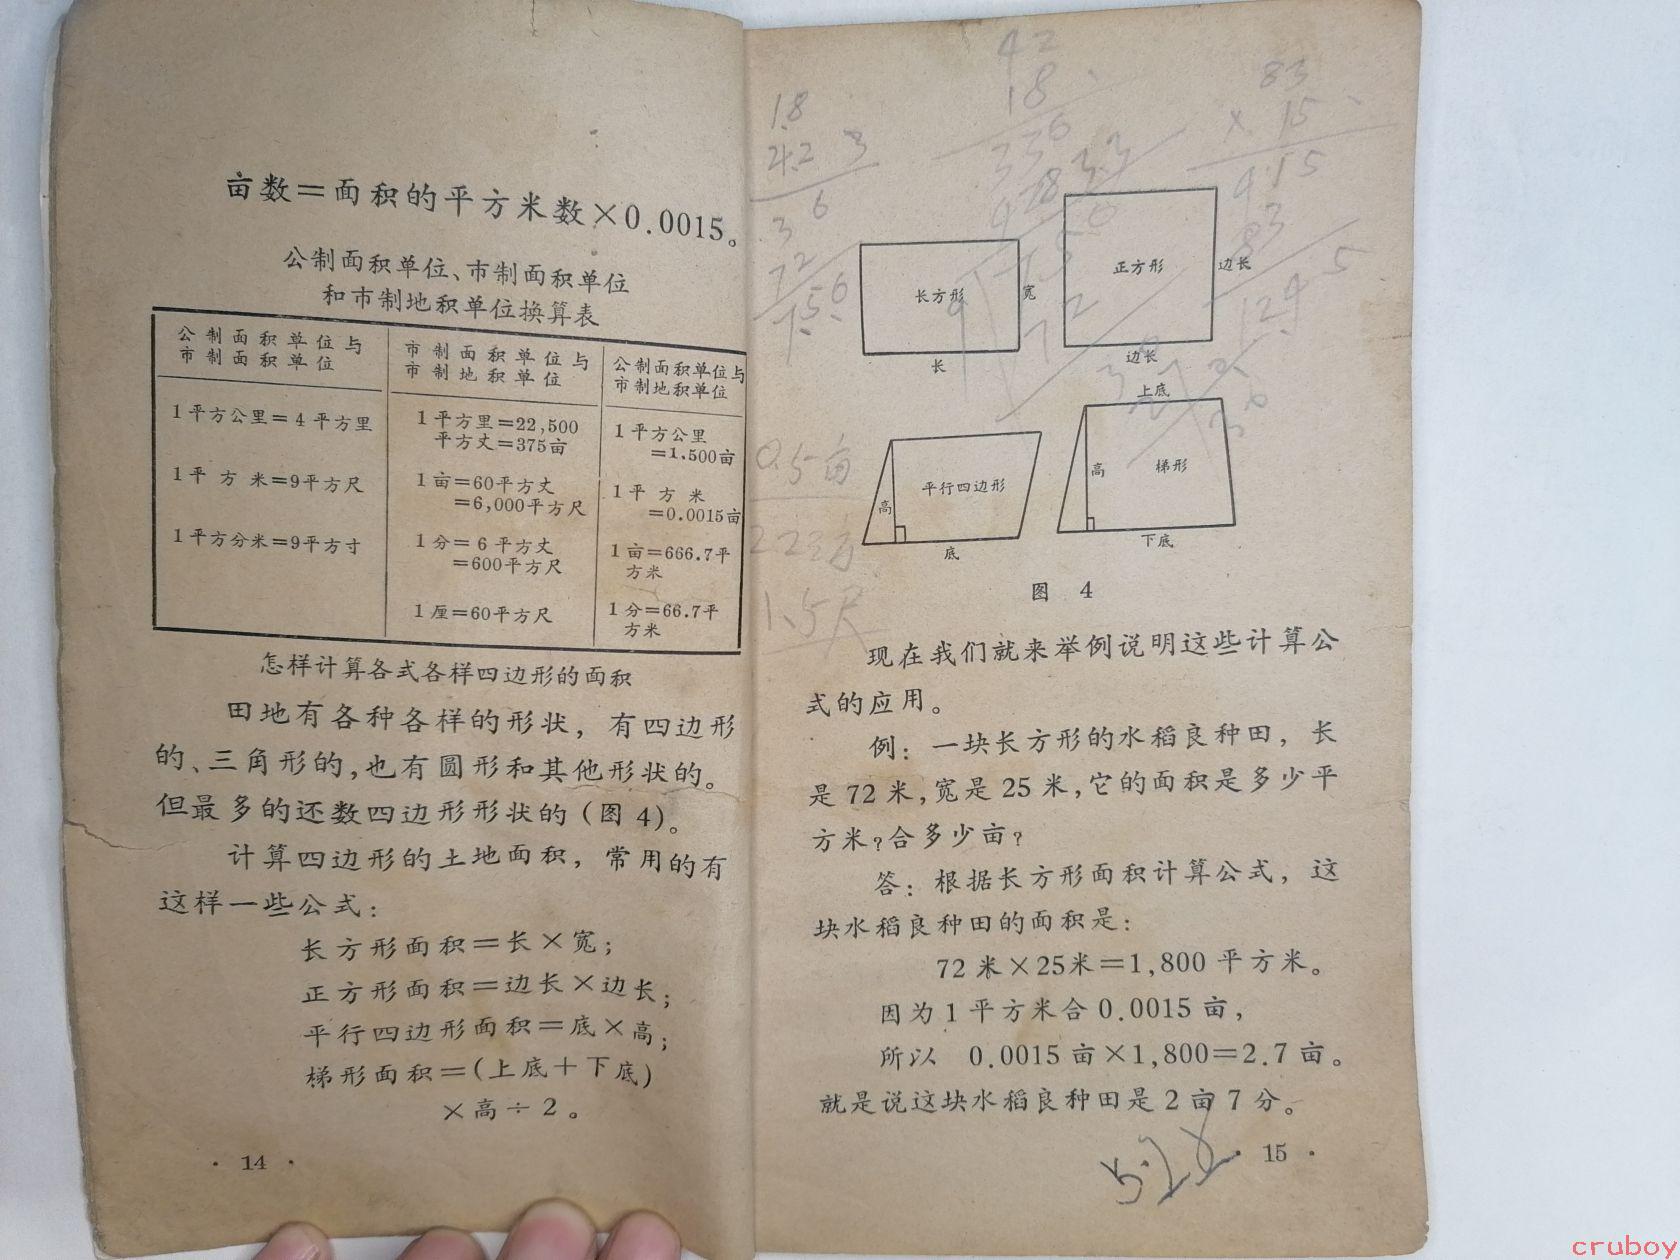 亩数＝面积的平方米数×0.0015。
公制面积单位、市制面积单位
和市制地积单位换算表
公制面积单位与
市制面积单位
市制面积单位与
市制地积单位
公制面积单位与
市制地积单位
1平方公里＝4平方里
1平方里＝22,500
平方丈＝375亩
1平方公里
＝1.500亩
1平方米＝9平方尺
1亩＝60平方丈
＝6,000平方尺
1平方米
＝0.0015亩
1平方分米＝9平方寸
1分＝6平方丈
＝600平方尺
1亩＝666.7平
方米
1厘＝60平方尺
1分＝66.7平
方米
怎样计算各式各样四边形的面积
田地有各种各样的形状，有四边形
的、三角形的，也有圆形和其他形状的。
但最多的还数四边形形状的（图4）。
计算四边形的土地面积，常用的有
这样一些公式：
长方形面积＝长×宽；
正方形面积＝边长×边长；
平行四边形面积＝底×高；
梯形面积＝（上底＋下底）
×高÷2。
· 14 ·
42
18
336
83
× 15
415
83
1245
1.8
4.2
3 6
7 2
7.5 6
长方形
宽
长
正方形
边长
边长
平行四边形
高
底
上底
高
梯形
下底
0.5亩
1.5尺
图 4
现在我们就来举例说明这些计算公
式的应用。
例：一块长方形的水稻良种田，长
是72米，宽是25米，它的面积是多少平
方米？合多少亩？
答：根据长方形面积计算公式，这
块水稻良种田的面积是：
72米×25米＝1,800平方米。
因为1平方米合0.0015亩，
所以 0.0015亩×1,800＝2.7亩。
就是说这块水稻良种田是2亩7分。
· 15 ·
cruboy